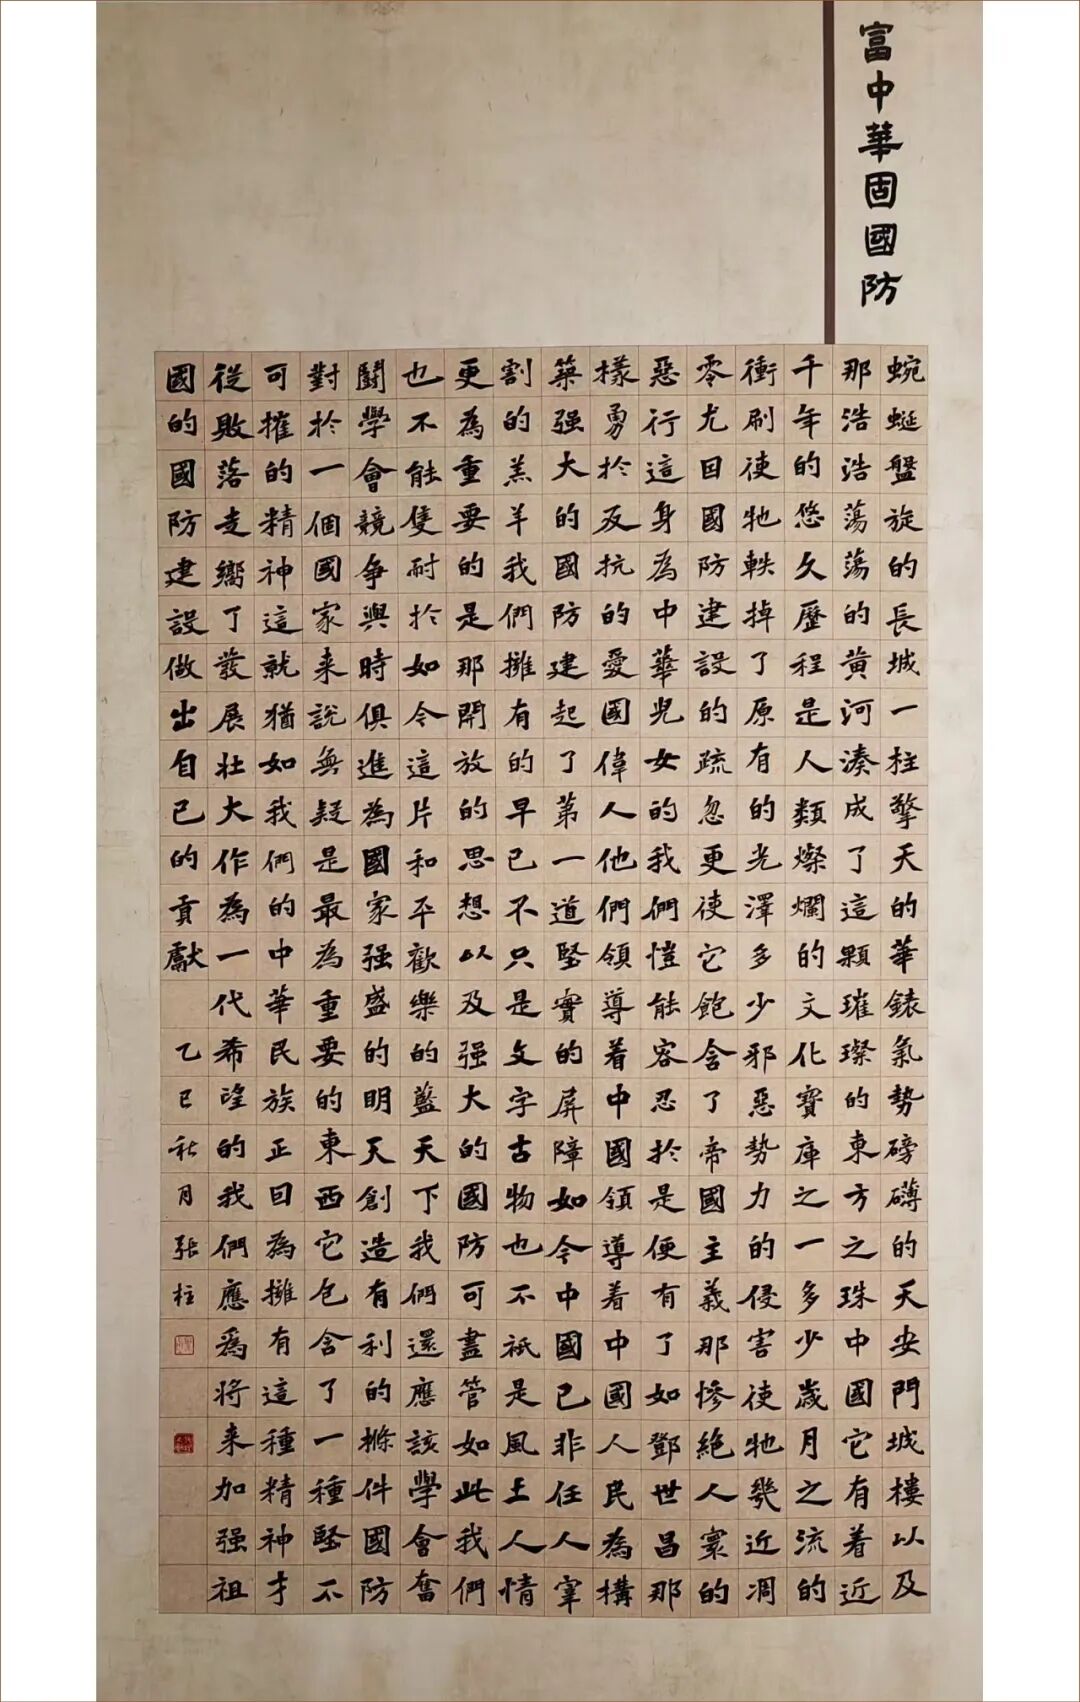 富中華固國防
蜿蜒盤旋的長城一柱擎天的華錶氣勢磅礴的天安門城樓以及
那浩浩蕩蕩的黃河湊成了這顆璀璨的東方之珠中國它有着近
千年的悠久歷程是人類燦爛的文化寶庫之一多少歲月之流的
衝刷使牠軼掉了原有的光澤多少邪惡勢力的侵害使牠幾近凋
零尤目國防建設的疏忽更使它飽含了帝國主義那慘絕人寰的
惡行這身為中華兒女的我們愷能容忍於是便有了如鄧世昌那
樣勇於反抗的愛國偉人他們領導着中國領導着中國人民為構
築强大的國防建起了第一道堅實的屏障如今中國已非任人宰
割的羔羊我們擁有的早已不只是文字古物也不祇是風土人情
更為重要的是那開放的思想以及强大的國防可盡管如此我們
也不能隻耐於如今這片和平歡樂的藍天下我們還應該學會奮
鬪學會競争與時俱進為國家强盛的明天創造有利的條件國防
對於一個國家来說無疑是最為重要的東西它包含了一種堅不
可摧的精神這就猶如我們的中華民族正回為擁有這種精神才
從敗落走嚮了發展壯大作為一代希望的我們應爲将来加强祖
國的國防建設做出自己的貢獻 乙巳秋月張柱